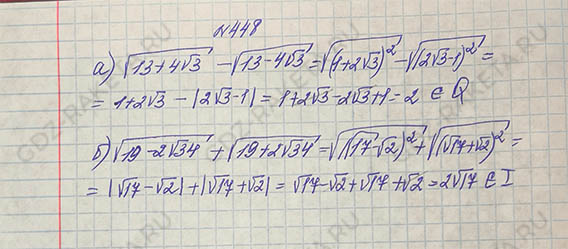 №448
а) √(13+4√3) - √(13-4√3) = √((1+2√3)²) - √((2√3-1)²) =
= 1+2√3 - |2√3-1| = 1+2√3-2√3+1 = 2 ∈ Q
б) √(19-2√34) + √(19+2√34) = √((√17-√2)²) + √((√17+√2)²) =
= |√17-√2| + |√17+√2| = √17-√2+√17+√2 = 2√17 ∈ I
GDZ-RAKETA.RU